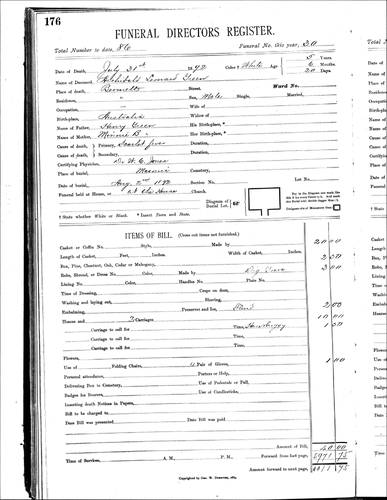 176
FUNERAL DIRECTORS REGISTER.
Total Number to date, 86 Funeral No. this year, 30
Date of Death, July 31st 1892 Color † White Age 5 Years 6 Months 20 Days
Name of Deceased, Archibald Leonard Green
Place of death, Street, Ward No.
Residence, " Sex, Male Single, Married,
Occupation, — Wife of
Birth-place, Australia Widow of
Name of Father, Henry Green His Birth-place,*
Name of Mother, Minnie B. " Her Birth-place,*
Cause of death, Primary, Scarlet fever Duration,
Cause of death, Secondary, Duration,
Certifying Physician, Dr W. E. Jones
Place of burial, Masonic Cemetery,
Date of burial, Aug. 2nd 1892 Section No. Lot No.
Funeral held at Home, or at the House Church Diagram of Burial Lot.
† State whether White or Black. * Insert Town and State.
ITEMS OF BILL. (Cross out items not furnished.)
Casket or Coffin No. Style, Made by 20 00
Length of Casket, Feet, Inches. Width of Casket, Inches.
Box, Pine, Chestnut, Oak, Cedar or Mahogany, 2 00
Robe, Shroud, or Dress No. Color, Made by 3 00
Lining No. Color, Handles No. Plate No.
Time of Dressing, Corps on door,
Washing and laying out, Shaving,
Embalming, Preserver and Ice, Fluid 2 00
Hearse and 2 Carriages 10 00
Carriage to call for Time, 1 00
Carriage to call for Time,
Carriage to call for Time,
Flowers,
Use of Folding Chairs, 4 Pair of Gloves, 1 00
Personal attendance, Porters or Help,
Delivering Box to Cemetery, Use of Pedestals or Pall,
Badges for Bearers, Use of Candlesticks,
Inserting death Notices in Papers,
Bill to be charged to
Date Bill was presented Date Bill was paid
Amount of Bill, 40 00
Time of Services, A. M., P. M., Forward from last page,
Amount forward to next page,